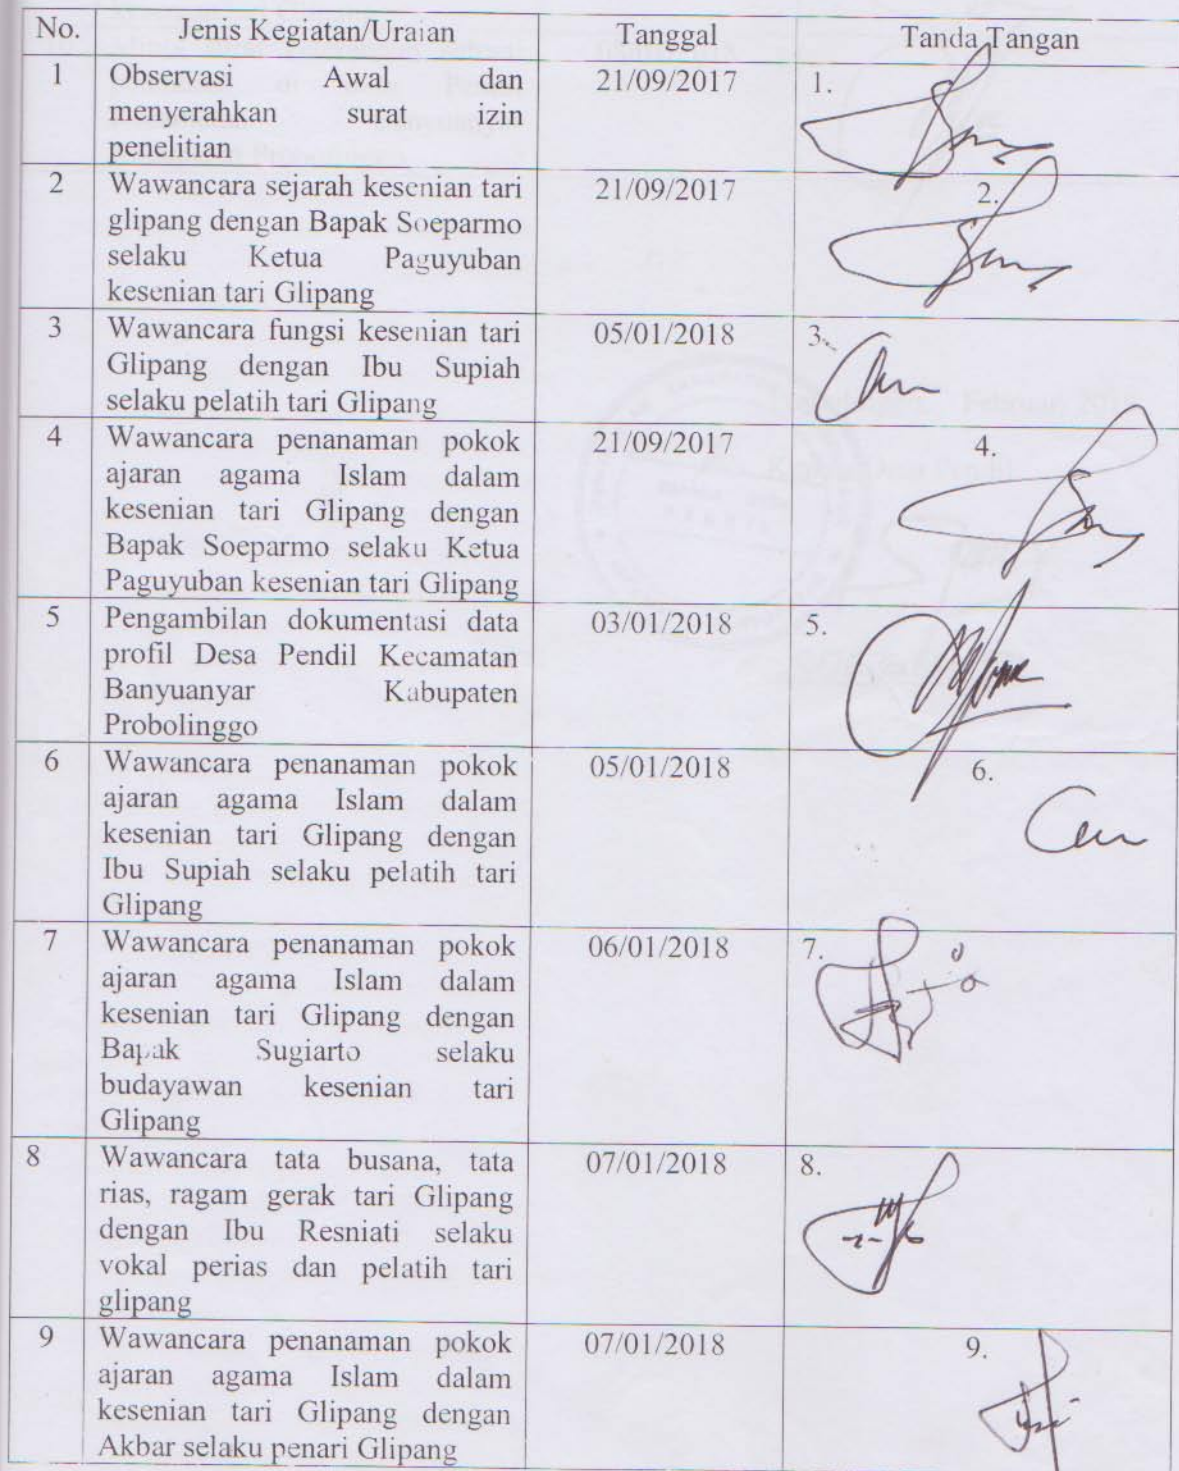 No. Jenis Kegiatan/Uraian Tanggal Tanda Tangan
1 Observasi Awal dan 21/09/2017 1.
menyerahkan surat izin
penelitian
2 Wawancara sejarah kesenian tari 21/09/2017 2.
glipang dengan Bapak Soeparmo
selaku Ketua Paguyuban
kesenian tari Glipang
3 Wawancara fungsi kesenian tari 05/01/2018 3.
Glipang dengan Ibu Supiah
selaku pelatih tari Glipang
4 Wawancara penanaman pokok 21/09/2017 4.
ajaran agama Islam dalam
kesenian tari Glipang dengan
Bapak Soeparmo selaku Ketua
Paguyuban kesenian tari Glipang
5 Pengambilan dokumentasi data 03/01/2018 5.
profil Desa Pendil Kecamatan
Banyuanyar Kabupaten
Probolinggo
6 Wawancara penanaman pokok 05/01/2018 6.
ajaran agama Islam dalam
kesenian tari Glipang dengan
Ibu Supiah selaku pelatih tari
Glipang
7 Wawancara penanaman pokok 06/01/2018 7.
ajaran agama Islam dalam
kesenian tari Glipang dengan
Bapak Sugiarto selaku
budayawan kesenian tari
Glipang
8 Wawancara tata busana, tata 07/01/2018 8.
rias, ragam gerak tari Glipang
dengan Ibu Resniati selaku
vokal perias dan pelatih tari
glipang
9 Wawancara penanaman pokok 07/01/2018 9.
ajaran agama Islam dalam
kesenian tari Glipang dengan
Akbar selaku penari Glipang